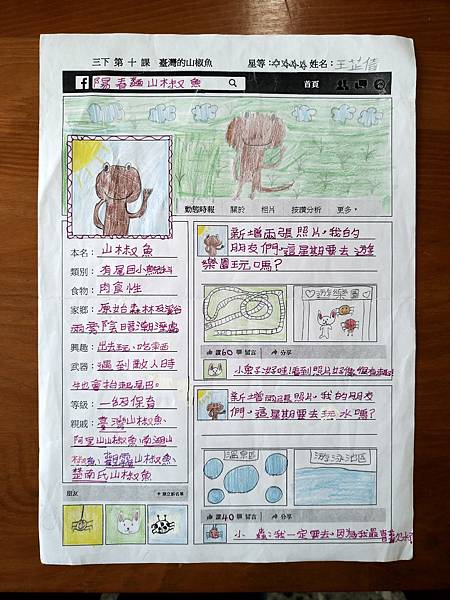 三下 第 十 課 臺灣的山椒魚 星等: 姓名:王芷倩
f 陽春麵山椒魚 首頁
動態時報 關於 相片 按讚分析 更多
本名: 山椒魚
類別: 有尾目小鯢科
食物: 肉食性
家鄉: 原始森林及溪谷
兩旁陰暗潮溼處
興趣: 出去玩、吃東西
武器: 遇到敵人時
牠會抬起尾巴。
等級: 一級保育
親戚: 臺灣山椒魚、
阿里山山椒魚、南湖山
椒魚、觀霧山椒魚、
楚南氏山椒魚
朋友
新增兩張照片,我的
朋友們,這星期要去遊
樂園玩嗎?
遊樂園
讚60個留言 分享
小兔:好呀!看到照片好像很有趣!
新增兩張照片,我的朋友
們,這星期要去玩水嗎?
溫泉區 游泳池區
讚40個留言 分享
小 蟲:我一定要去,因為我最喜